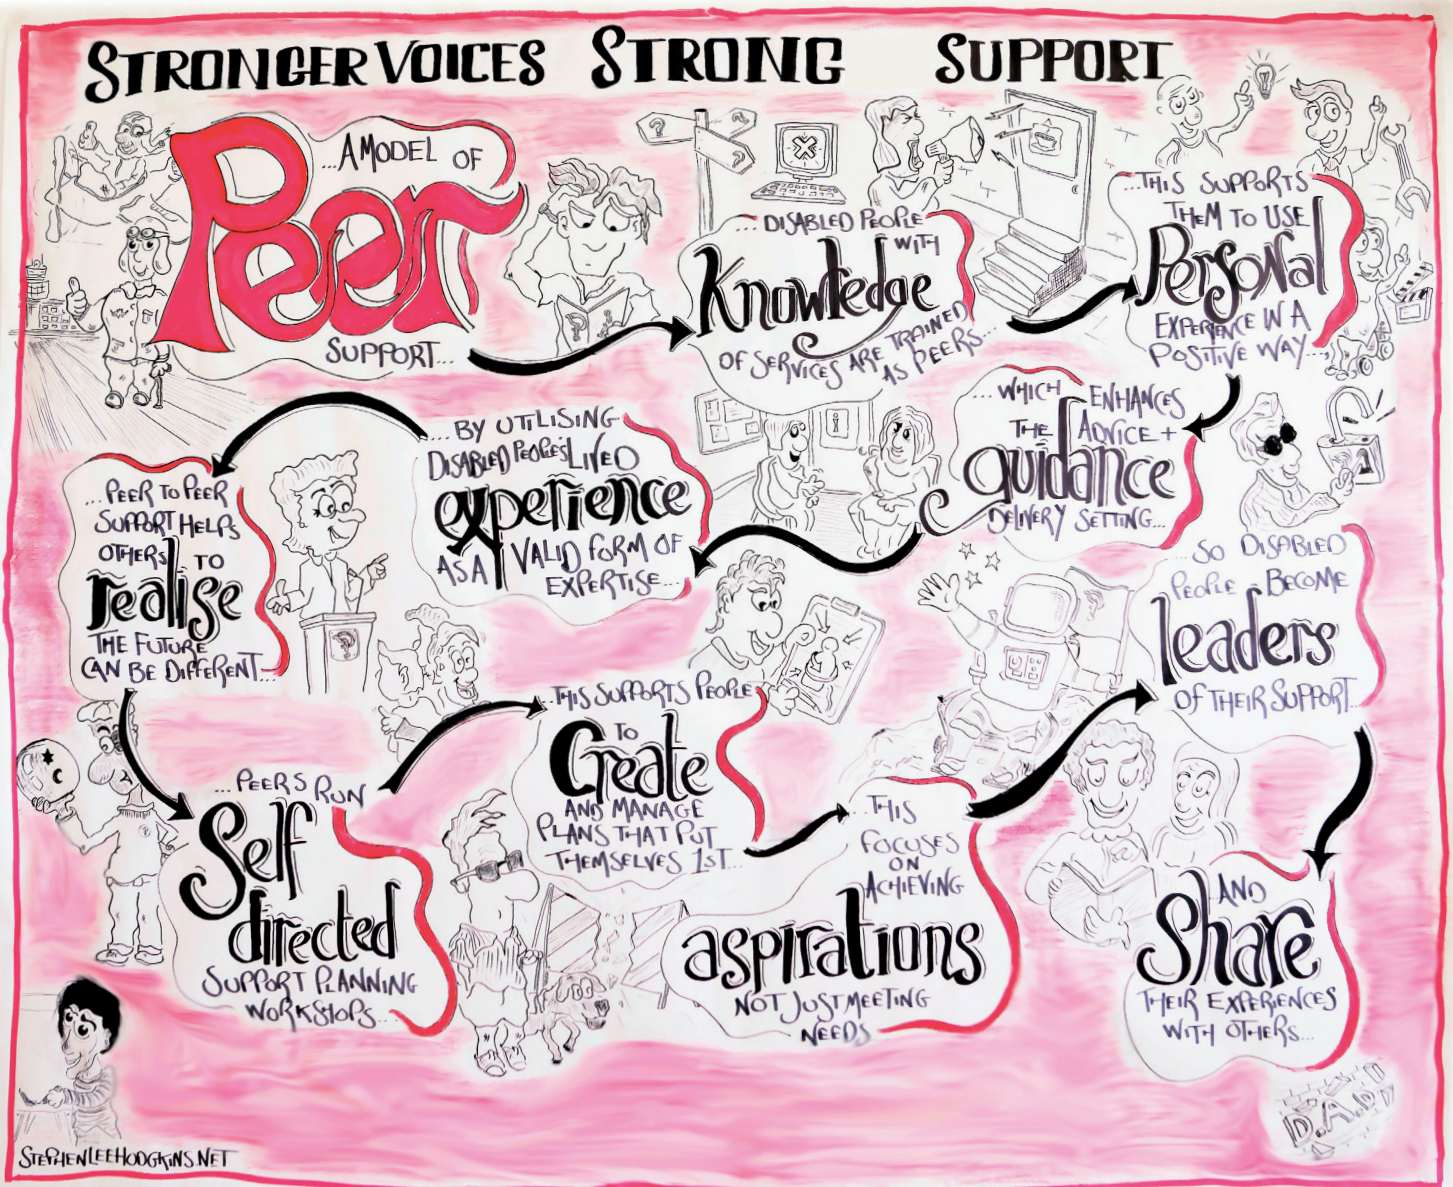 STRONGER VOICES STRONG SUPPORT
...A MODEL OF
Peer
SUPPORT...
... DISABLED PEOPLE
WITH
Knowledge
OF SERVICES ARE TRAINED
AS PEERS...
...THIS SUPPORTS
THEM TO USE
Personal
EXPERIENCE IN A
POSITIVE WAY...,
...WHICH ENHANCES
THE ADVICE +
guidance
DELIVERY SETTING...
...BY UTILISING
DISABLED PEOPLE'S LIVED
experience
AS A VALID FORM OF
EXPERTISE...
...PEER TO PEER
SUPPORT HELPS
OTHERS TO
realise
THE FUTURE
CAN BE DIFFERENT...
...PEERS RUN
Self
directed
SUPPORT PLANNING
WORKSHOPS...
...THIS SUPPORTS PEOPLE
TO
Create
AND MANAGE
PLANS THAT PUT
THEMSELVES 1ST...
...THIS
FOCUSES
ON
ACHIEVING
aspirations
NOT JUST MEETING
NEEDS
...SO DISABLED
PEOPLE BECOME
leaders
OF THEIR SUPPORT...
AND
Share
THEIR EXPERIENCES
WITH OTHERS...
D.A.D
STEPHENLEEHODGKINS.NET